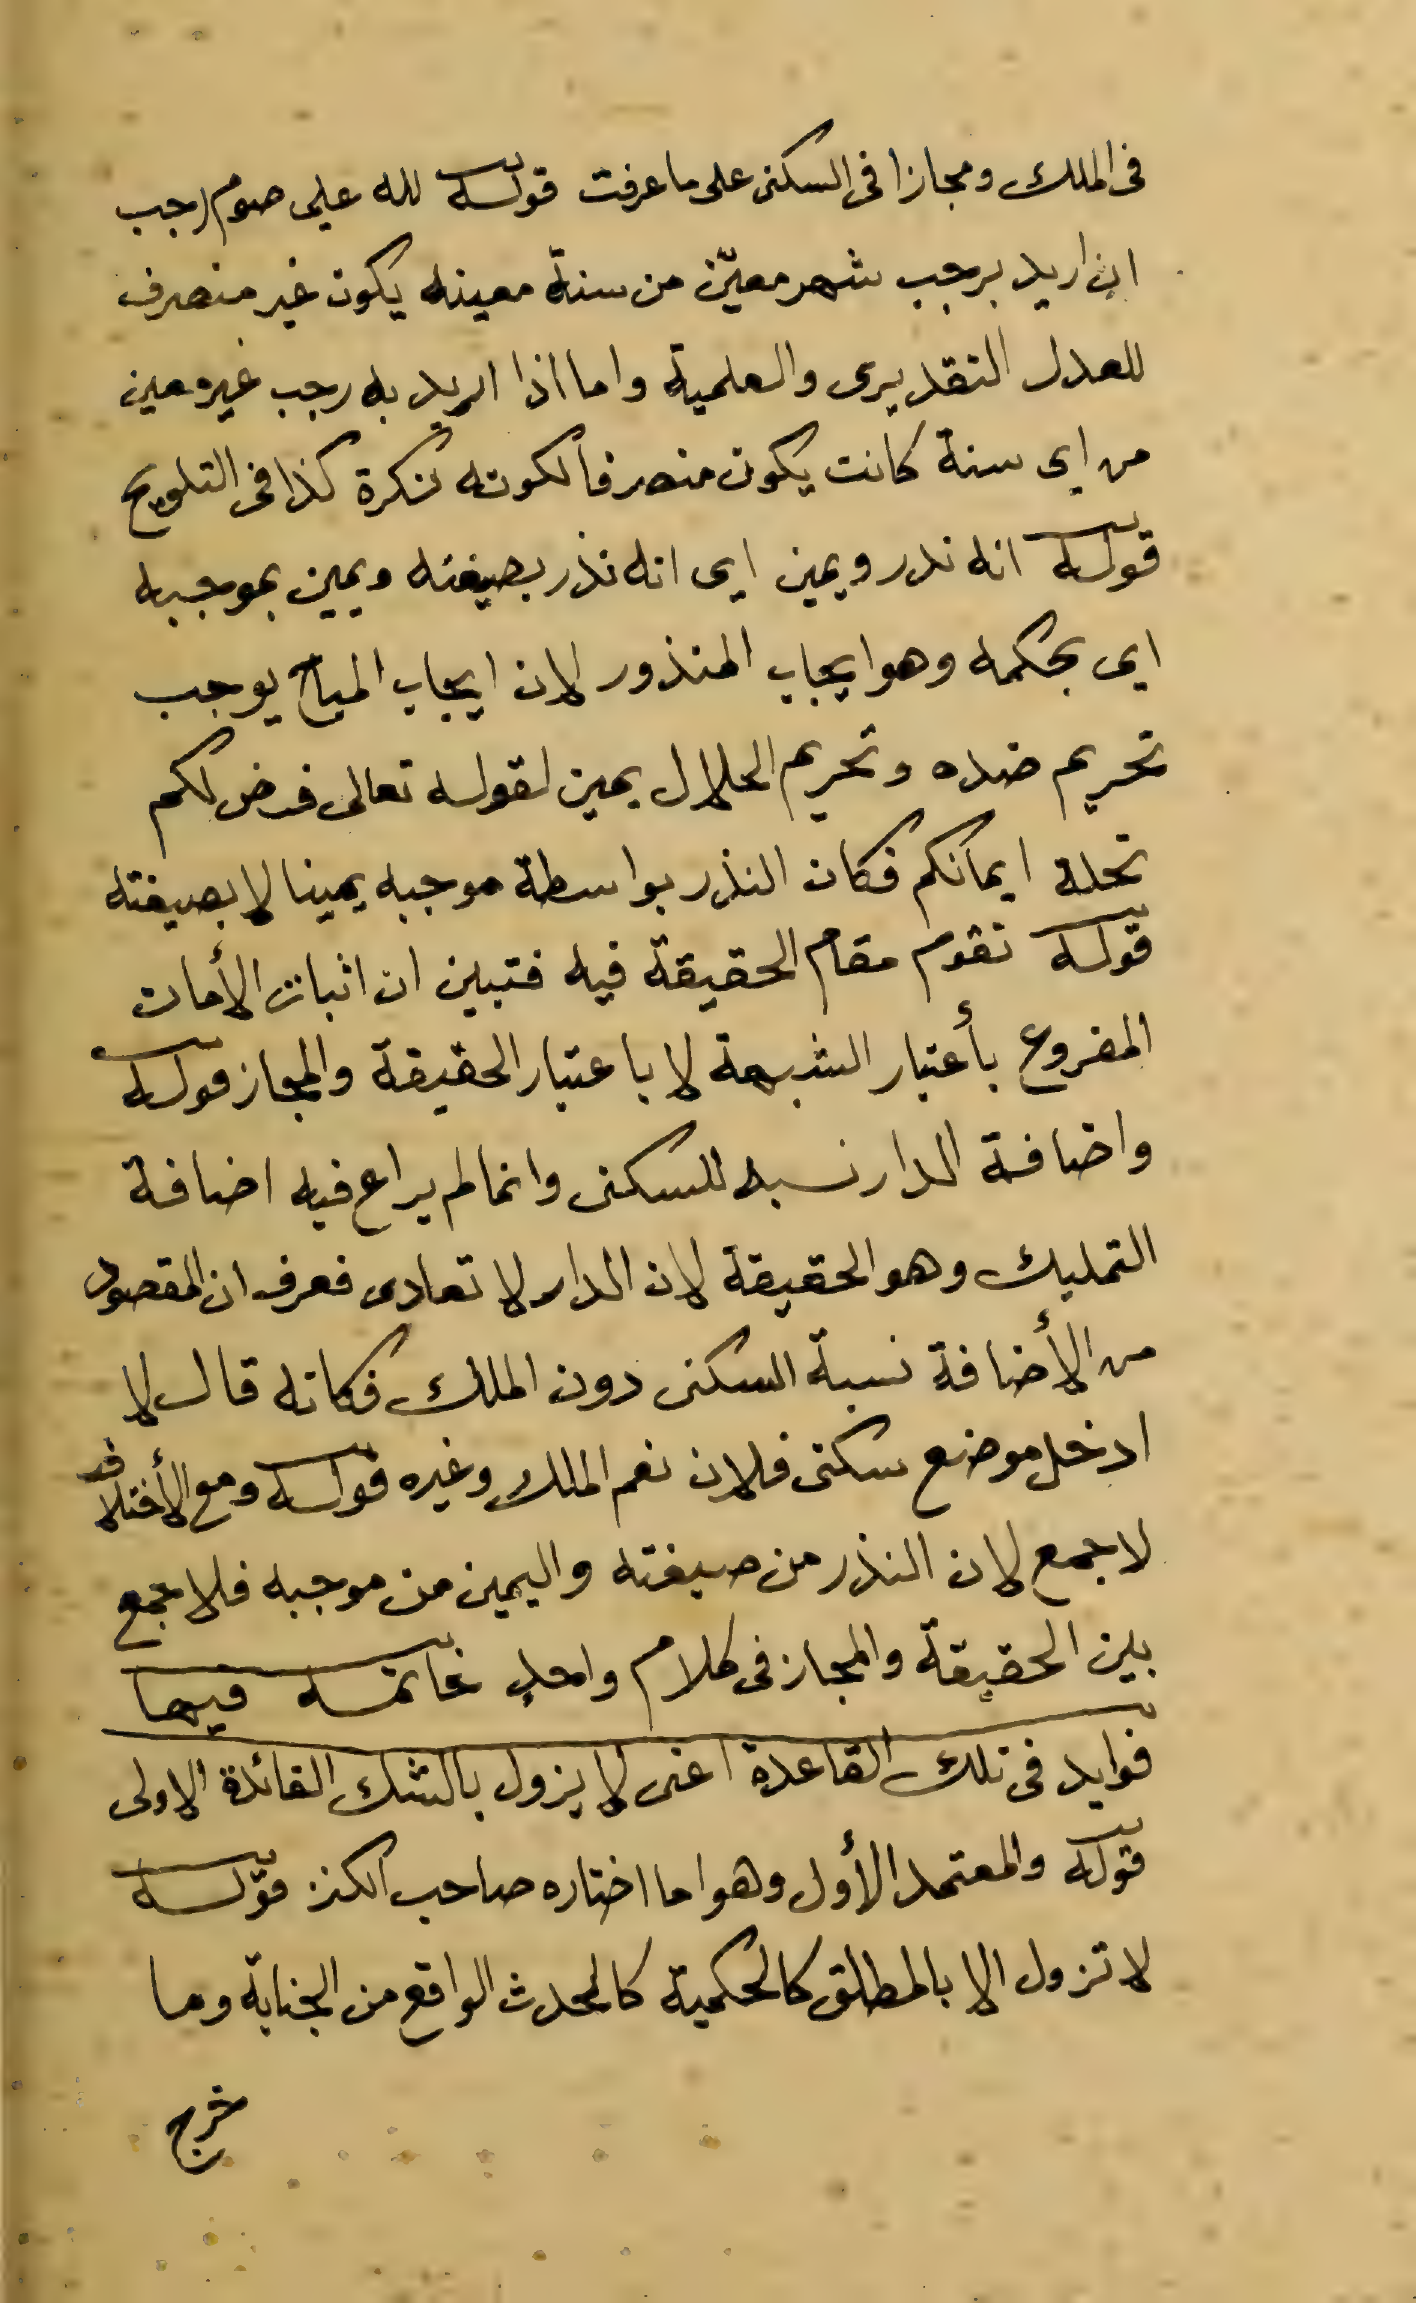 فى الملك ومجازا فى السكنى على ما عرفت قوله لله على صوم رجب
ان اريد برجب شهر معيّن من سنة معينه يكون غير منصرف
للعدل التقديرى والعلمية واما اذا اريد به رجب غير معين
من اى سنة كانت يكون منصرفا لكونه نكرة كذا فى التلويح
قوله انه نذر ويمين اى انه نذر بصيغته ويمين بموجبه
اى بحكمه وهو ايجاب المنذور لان ايجاب المباح يوجب
تحريم ضده وتحريم الحلال يمين لقوله تعالى فرض لكم
تحلة ايمانكم فكان النذر بواسطة موجبه يمينا لا بصيغته
قوله تقوم مقام الحقيقة فيه فتبين ان اثبات الأمان
المفروع بأعتبار الشبهة لا باعتبار الحقيقة والمجاز قوله
واضافة الدار نسبه للسكنى وانما لم يراع فيه اضافة
التمليك وهو الحقيقة لان الدار لا تعادى فعرف ان المقصود
من الأضافة نسبة السكنى دون الملك فكانه قال لا
ادخل موضع سكنى فلان نعم الملك وغيره قوله ومع الأختلاف
لا جمع لان النذر من صيغته واليمين من موجبه فلا جمع
بين الحقيقة والمجاز فى كلام واحد خاتمه فيها
فوايد فى تلك القاعدة اعنى لا يزول بالشك الفائدة الاولى
قوله والمعتمد الأول وهو ما اختاره صاحب الكنز قوله
لا تزول الا بالمطلق كالحكمية كالحدث الواقع من الجنابة وما
خرج